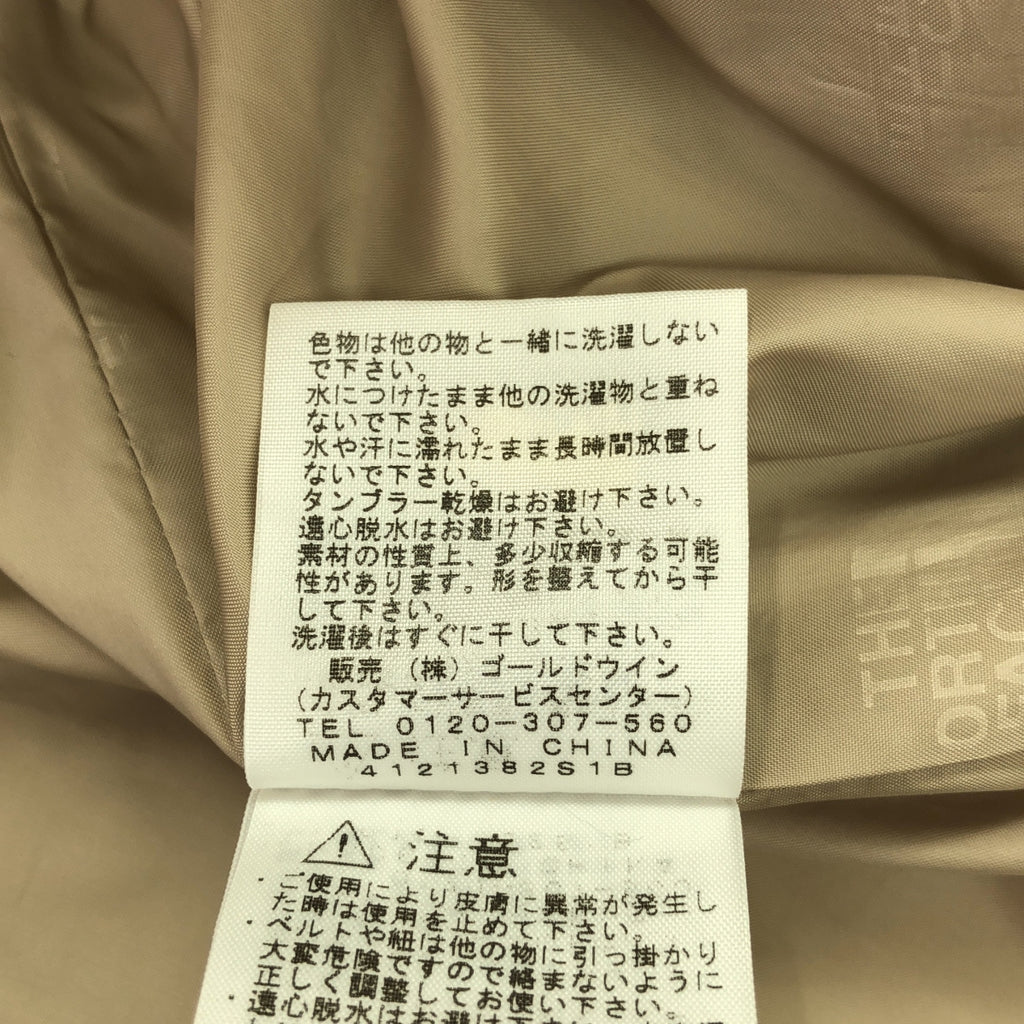 色物は他の物と一緒に洗濯しない
で下さい。
水につけたまま他の洗濯物と重ね
ないで下さい。
水や汗に濡れたまま長時間放置し
ないで下さい。
タンブラー乾燥はお避け下さい。
遠心脱水はお避け下さい。
素材の性質上、多少収縮する可能
性があります。形を整えてから干
して下さい。
洗濯後はすぐに干して下さい。
販売 (株) ゴールドウイン
(カスタマーサービスセンター)
TEL 0120-307-560
MADE IN CHINA
4121382S1B
注意
・ご使用により皮膚に異常が発生し
た時は使用を止めて下さい。
・ベルトや紐は他の物に引っ掛かり
大変危険ですので絡まないように
正しく調整してお使い下さい。
・遠心脱水はお避け下